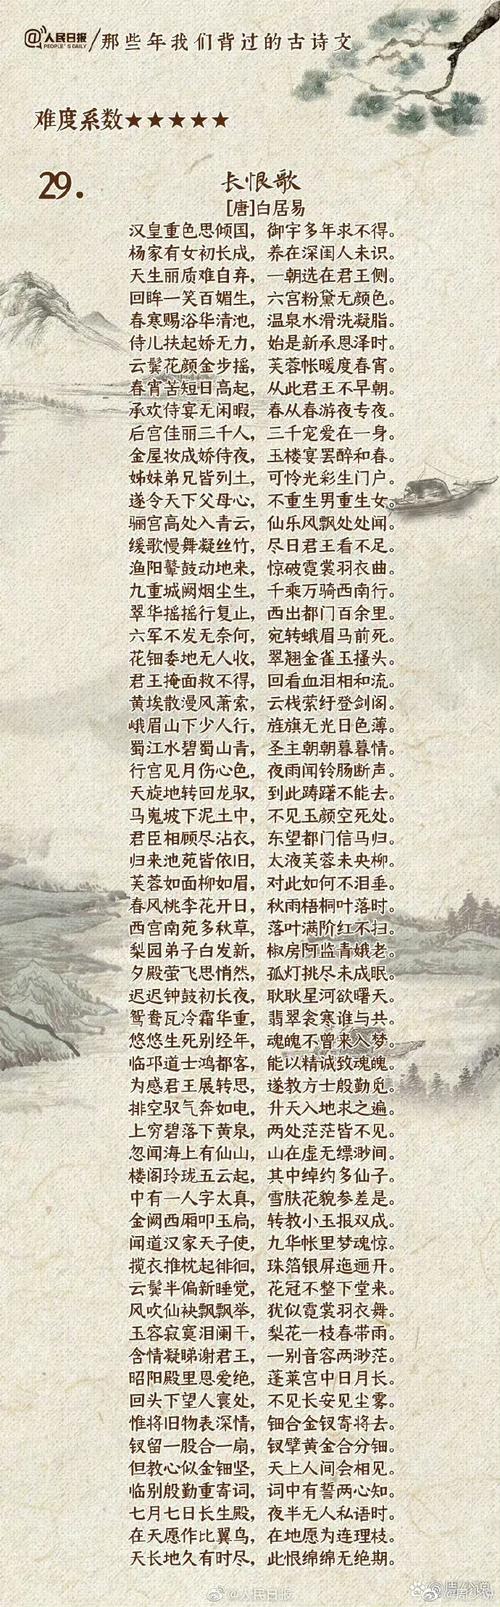 @人民日报/那些年我们背过的古诗文
PEOPLE'S DAILY
难度系数★★★★★
29. 长恨歌
[唐]白居易
汉皇重色思倾国，御宇多年求不得。
杨家有女初长成，养在深闺人未识。
天生丽质难自弃，一朝选在君王侧。
回眸一笑百媚生，六宫粉黛无颜色。
春寒赐浴华清池，温泉水滑洗凝脂。
侍儿扶起娇无力，始是新承恩泽时。
云鬓花颜金步摇，芙蓉帐暖度春宵。
春宵苦短日高起，从此君王不早朝。
承欢侍宴无闲暇，春从春游夜专夜。
后宫佳丽三千人，三千宠爱在一身。
金屋妆成娇侍夜，玉楼宴罢醉和春。
姊妹弟兄皆列土，可怜光彩生门户。
遂令天下父母心，不重生男重生女。
骊宫高处入青云，仙乐风飘处处闻。
缓歌慢舞凝丝竹，尽日君王看不足。
渔阳鼙鼓动地来，惊破霓裳羽衣曲。
九重城阙烟尘生，千乘万骑西南行。
翠华摇摇行复止，西出都门百余里。
六军不发无奈何，宛转蛾眉马前死。
花钿委地无人收，翠翘金雀玉搔头。
君王掩面救不得，回看血泪相和流。
黄埃散漫风萧索，云栈萦纡登剑阁。
峨眉山下少人行，旌旗无光日色薄。
蜀江水碧蜀山青，圣主朝朝暮暮情。
行宫见月伤心色，夜雨闻铃肠断声。
天旋地转回龙驭，到此踌躇不能去。
马嵬坡下泥土中，不见玉颜空死处。
君臣相顾尽沾衣，东望都门信马归。
归来池苑皆依旧，太液芙蓉未央柳。
芙蓉如面柳如眉，对此如何不泪垂。
春风桃李花开日，秋雨梧桐叶落时。
西宫南苑多秋草，落叶满阶红不扫。
梨园弟子白发新，椒房阿监青娥老。
夕殿萤飞思悄然，孤灯挑尽未成眠。
迟迟钟鼓初长夜，耿耿星河欲曙天。
鸳鸯瓦冷霜华重，翡翠衾寒谁与共。
悠悠生死别经年，魂魄不曾来入梦。
临邛道士鸿都客，能以精诚致魂魄。
为感君王展转思，遂教方士殷勤觅。
排空驭气奔如电，升天入地求之遍。
上穷碧落下黄泉，两处茫茫皆不见。
忽闻海上有仙山，山在虚无缥渺间。
楼阁玲珑五云起，其中绰约多仙子。
中有一人字太真，雪肤花貌参差是。
金阙西厢叩玉扃，转教小玉报双成。
闻道汉家天子使，九华帐里梦魂惊。
揽衣推枕起徘徊，珠箔银屏迤逦开。
云鬓半偏新睡觉，花冠不整下堂来。
风吹仙袂飘飘举，犹似霓裳羽衣舞。
玉容寂寞泪阑干，梨花一枝春带雨。
含情凝睇谢君王，一别音容两渺茫。
昭阳殿里恩爱绝，蓬莱宫中日月长。
回头下望人寰处，不见长安见尘雾。
惟将旧物表深情，钿合金钗寄将去。
钗留一股合一扇，钗擘黄金合分钿。
但教心似金钿坚，天上人间会相见。
临别殷勤重寄词，词中有誓两心知。
七月七日长生殿，夜半无人私语时。
在天愿作比翼鸟，在地愿为连理枝。
天长地久有时尽，此恨绵绵无绝期。
@人民日报